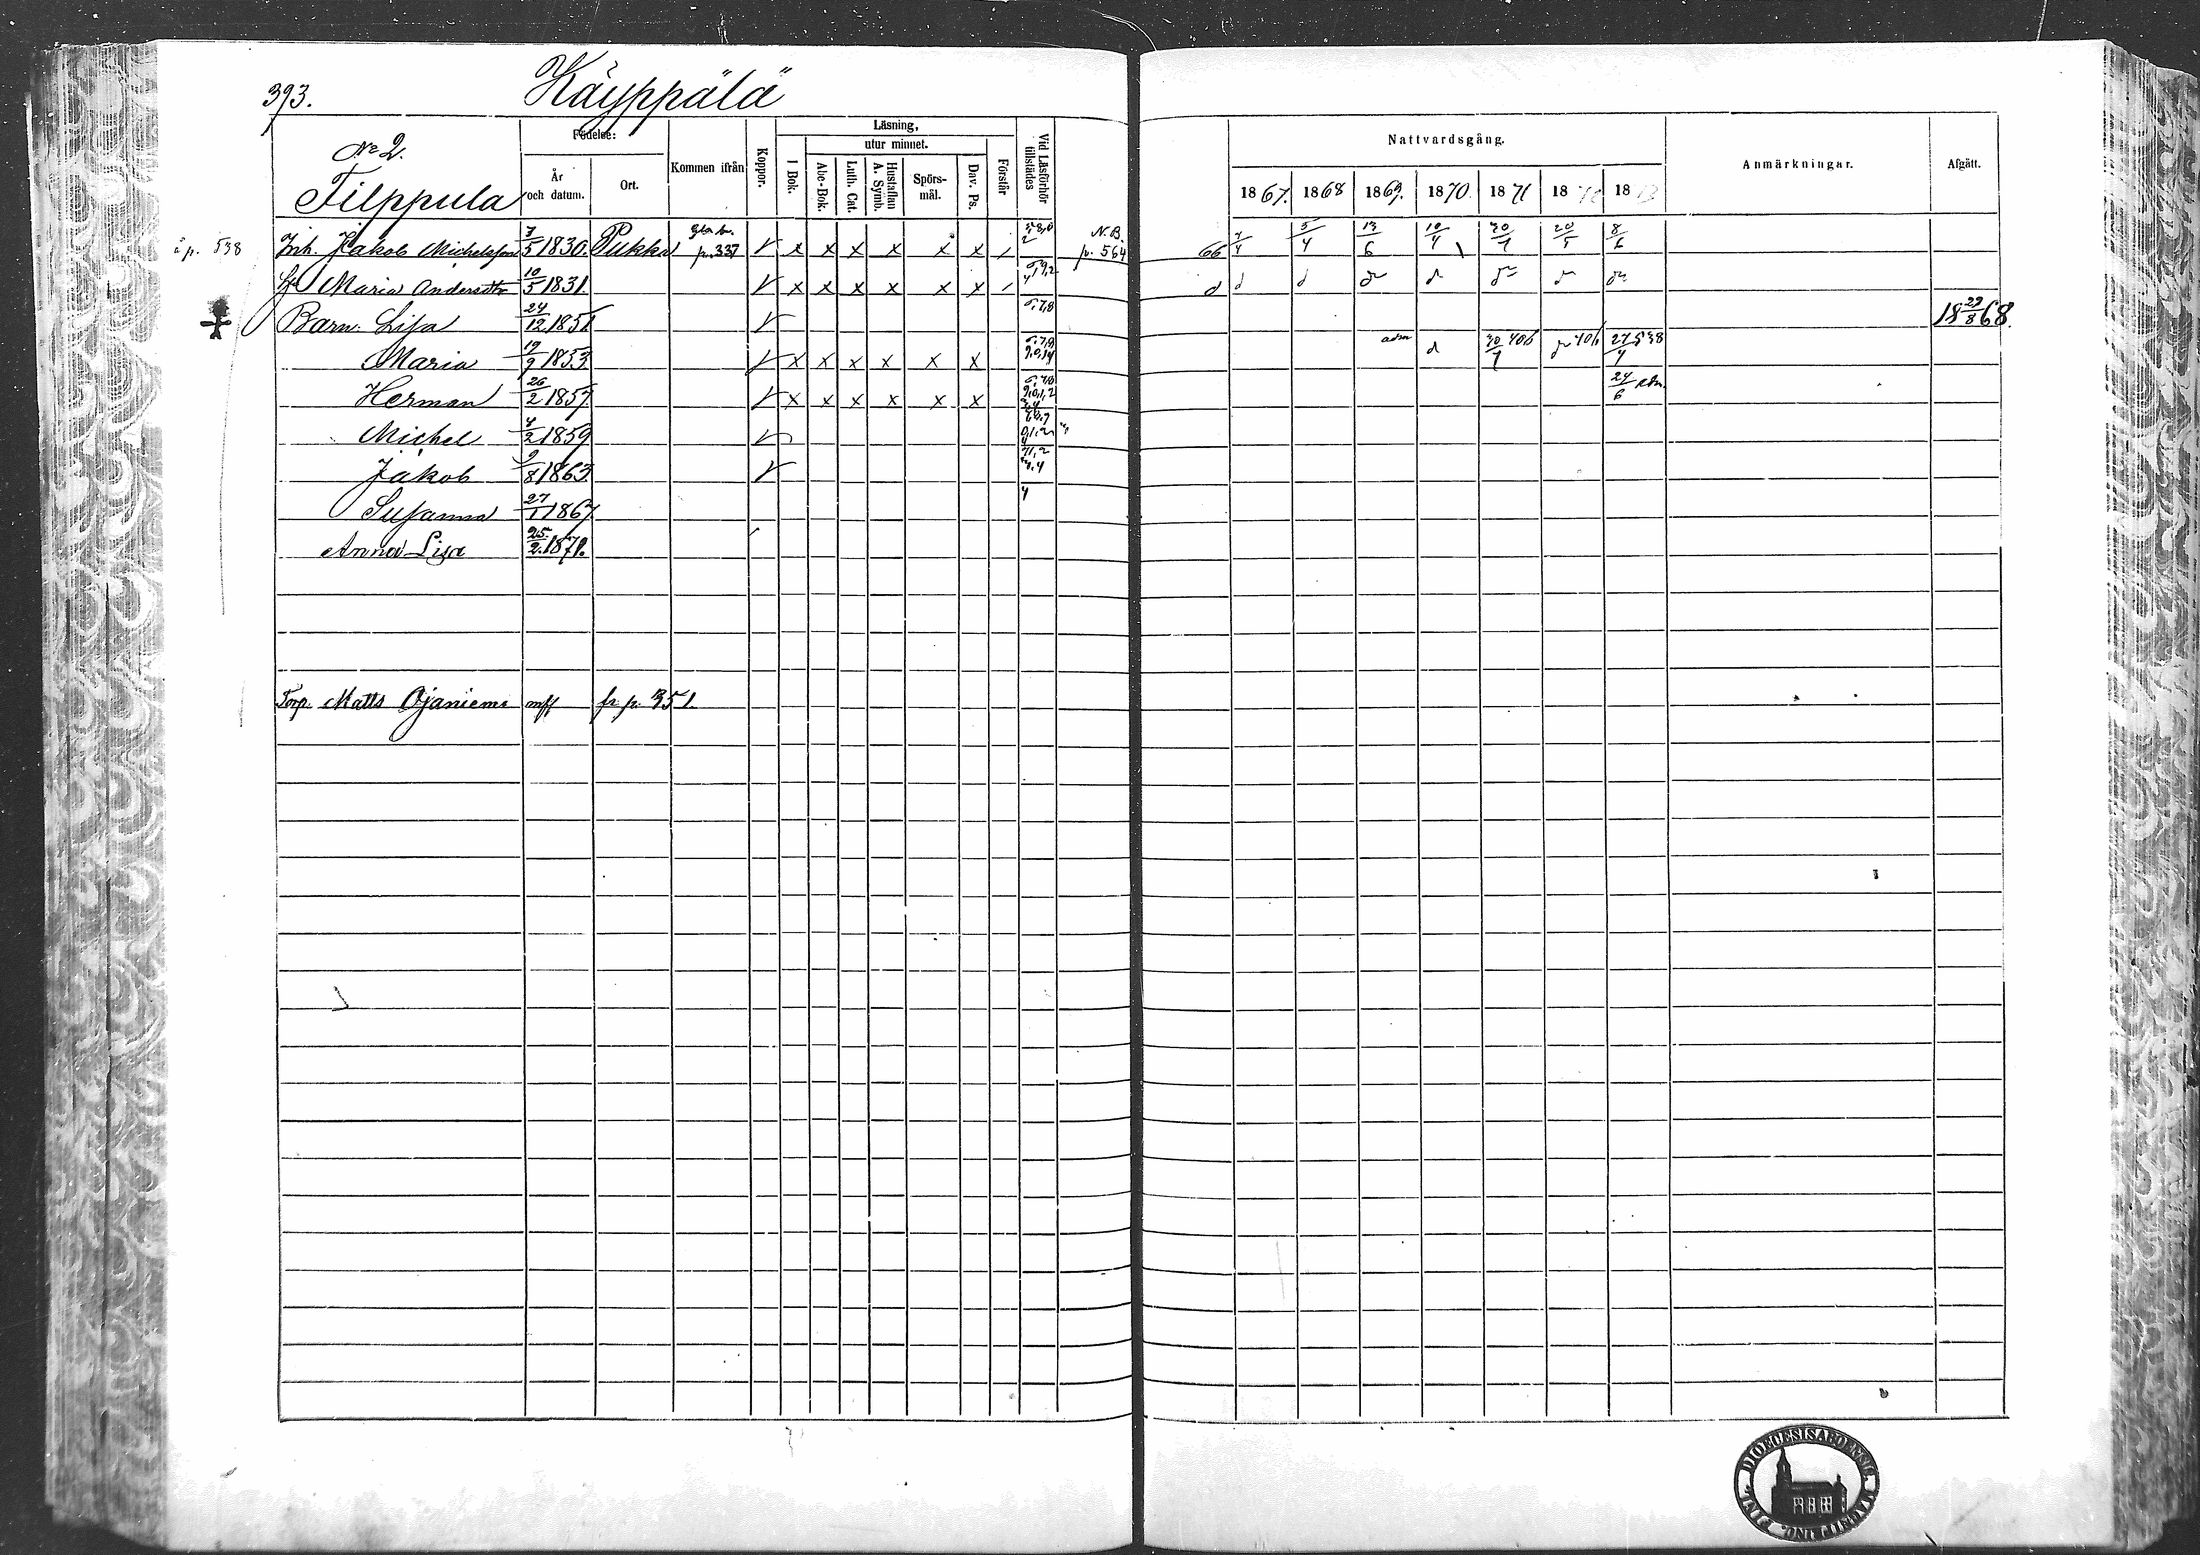 393. Käyppälä
No 2.
Filppula
Födelse:
År och datum.
Ort.
Kommen ifrån
Koppor.
Läsning,
utur minnet.
I Bok.
Abc-Bok.
Luth. Cat.
Hustaflan A. Symb.
Spörs-mål.
Dav. Ps.
Förstår
Vid Läsförhör tillstädes
Nattvardsgång.
1867. 1868 1869. 1870. 1871 18 18
Anmärkningar.
Afgått.
å p. 538 Inh. Jakob Michelsson 7/5 1830. Pukka p. 337 √ x x x x x x / N.B. p. 564 66 7/4 5/4 13/6 10/4 30/7 20/5 8/6
Maria Andersdtr 10/5 1831. √ x x x x x x / d d d d d d d d
Barn: Lisa 24/12 1851 √ 6,7,8 18 29/8 68.
Maria 19/9 1853. √ x x x x x x adm d 30/7 406 d 406 27/4 538
Herman 26/2 1857. √ x x x x x x 24/6 adm.
Michel 4/2 1859 √
Jakob 9/8 1863. √
Susanna 27/1 1867. 4
Anna Lisa 25/2 1871.
Torp. Matts Ojaniemi mff fr p. 351.
DIOECESIS ABOENSIS